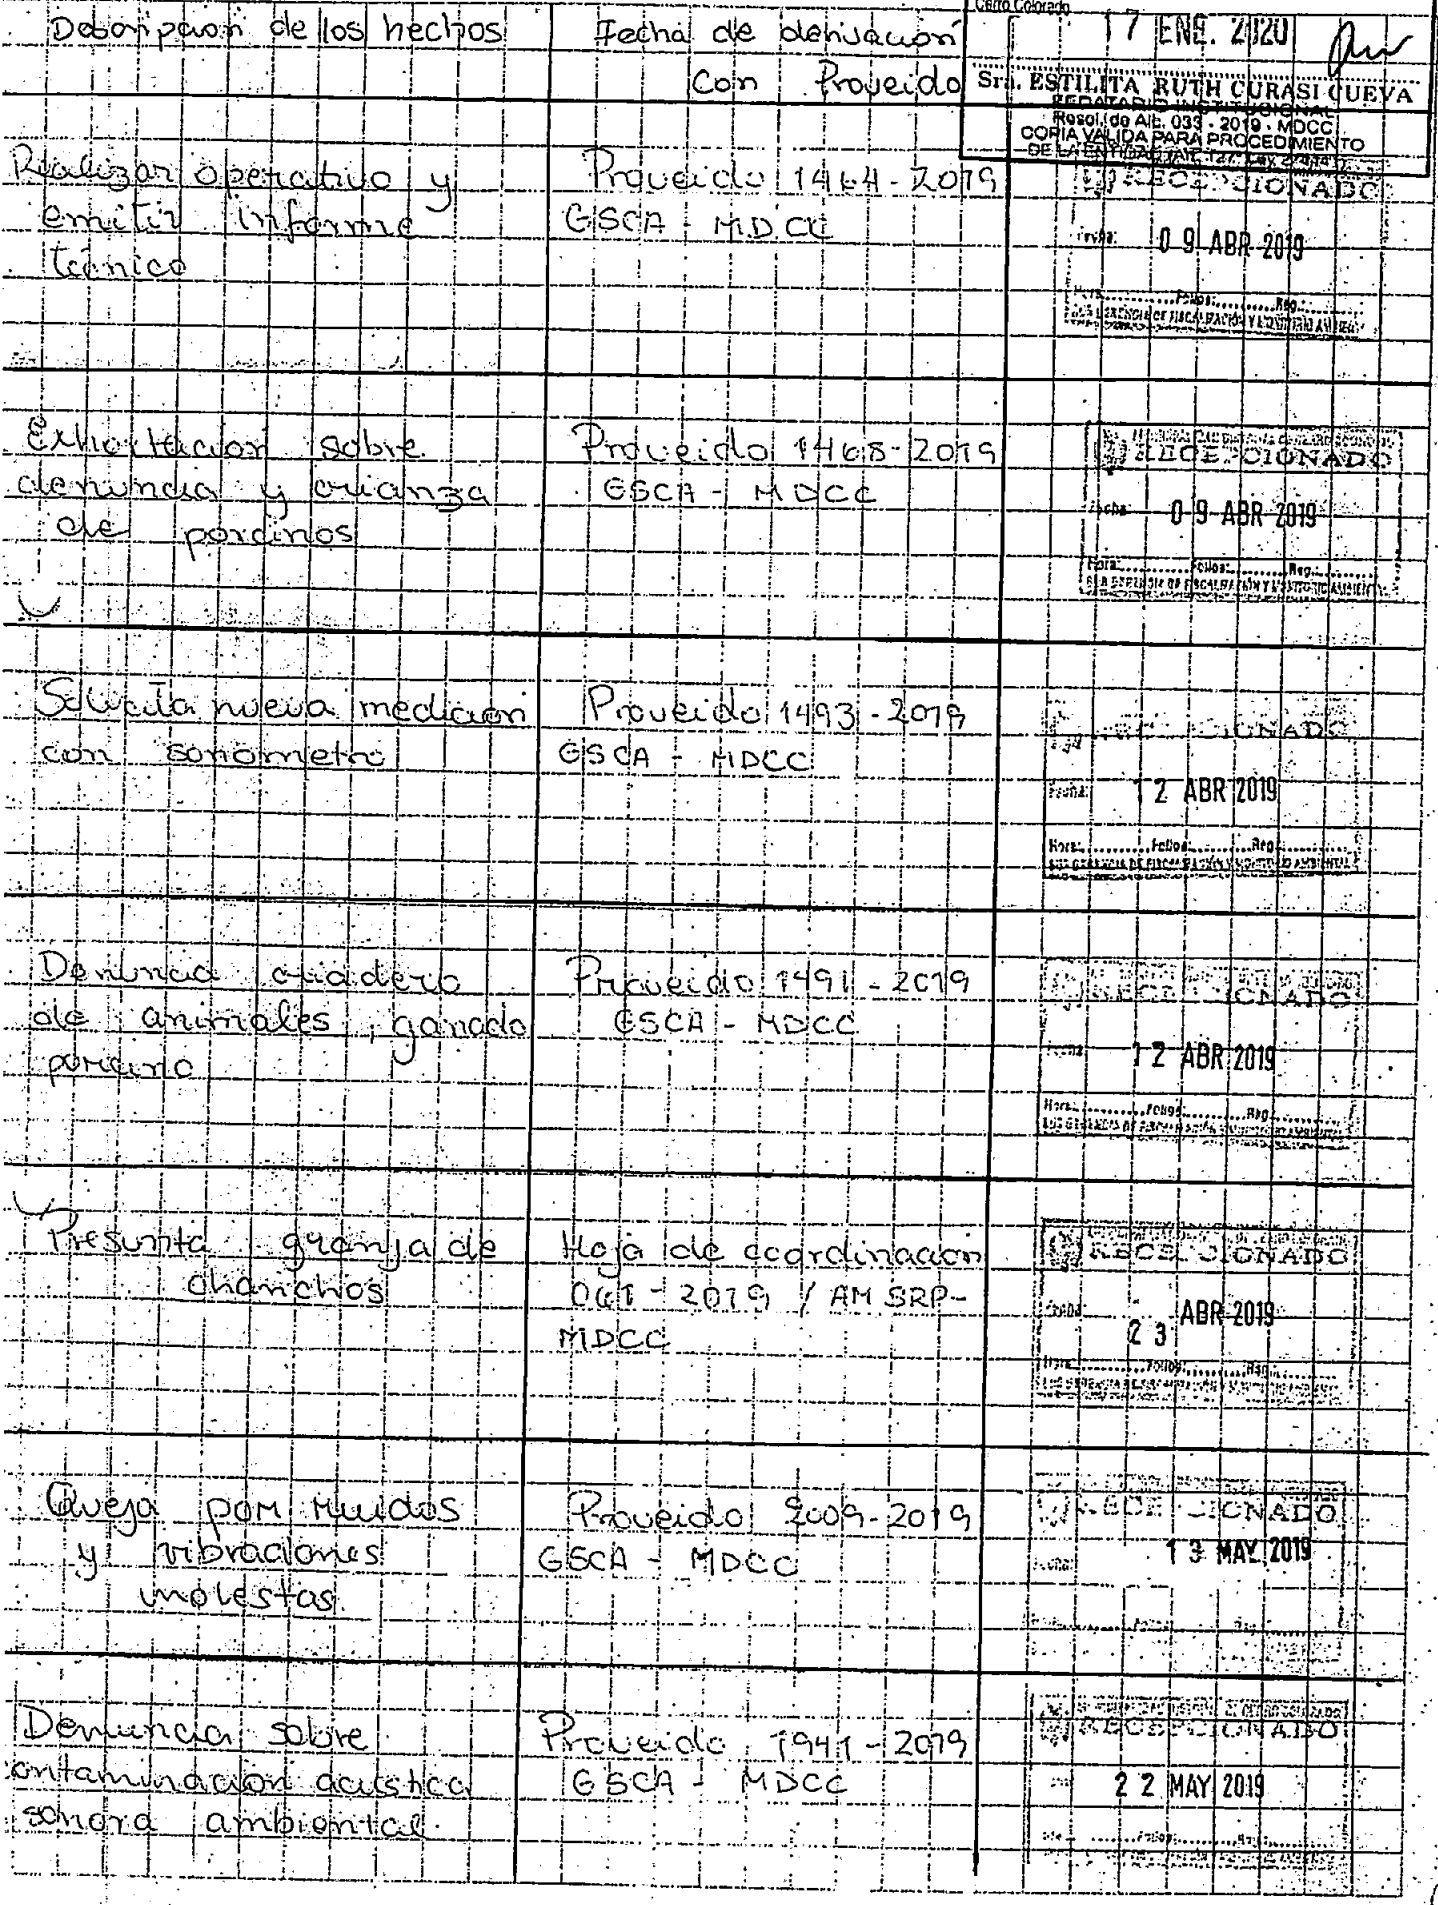 Descripcion de los hechos
Fecha de derivación
Con Proveido
Cerro Colorado
17 ENE. 2020
Sra. ESTILITA RUTH CURASI CUEVA
FEDATARIO INSTITUCIONAL
Resol. de Alc. 033 - 2019 - MDCC
COPIA VALIDA PARA PROCEDIMIENTO
DE LA ENTIDAD
Realizar operativo y
emitir informe
técnico
Proveido 1464-2019
GSCA - MDCC
RECEPCIONADO
Fecha: 09 ABR 2019
Hora: Folios: Reg.:
SUB GERENCIA DE FISCALIZACIÓN Y MONITOREO AMBIENTAL
Exhortacion sobre
denuncia y crianza
de porcinos
Proveido 1468-2019
GSCA - MDCC
RECEPCIONADO
Fecha: 09 ABR 2019
Hora: Folios: Reg.:
SUB GERENCIA DE FISCALIZACIÓN Y MONITOREO AMBIENTAL
Solicita nueva medicion
con sonometro
Proveido 1493-2019
GSCA - MDCC
RECEPCIONADO
Fecha: 12 ABR 2019
Hora: Folios: Reg.
SUB GERENCIA DE FISCALIZACIÓN Y MONITOREO AMBIENTAL
Denuncia criadero
de animales, ganado
porcino
Proveido 1491-2019
GSCA - MDCC
RECEPCIONADO
Fecha 12 ABR 2019
Hora: Folios: Reg.
SUB GERENCIA DE FISCALIZACIÓN Y MONITOREO AMBIENTAL
Presunta granja de
chanchos
Hoja de coordinacion
2019 / AMSRP-
MDCC
RECEPCIONADO
Fecha 23 ABR 2019
Hora: Folios: Reg.
Queja por ruidos
y vibraciones
molestas.
Proveido 2009-2019
GSCA - MDCC
RECEPCIONADO
13 MAY 2019
Denuncia sobre
contaminacion acustica
sonora ambiental.
Proveido 1941-2019
GSCA - MDCC
RECEPCIONADO
22 MAY 2019
Folios: Reg.